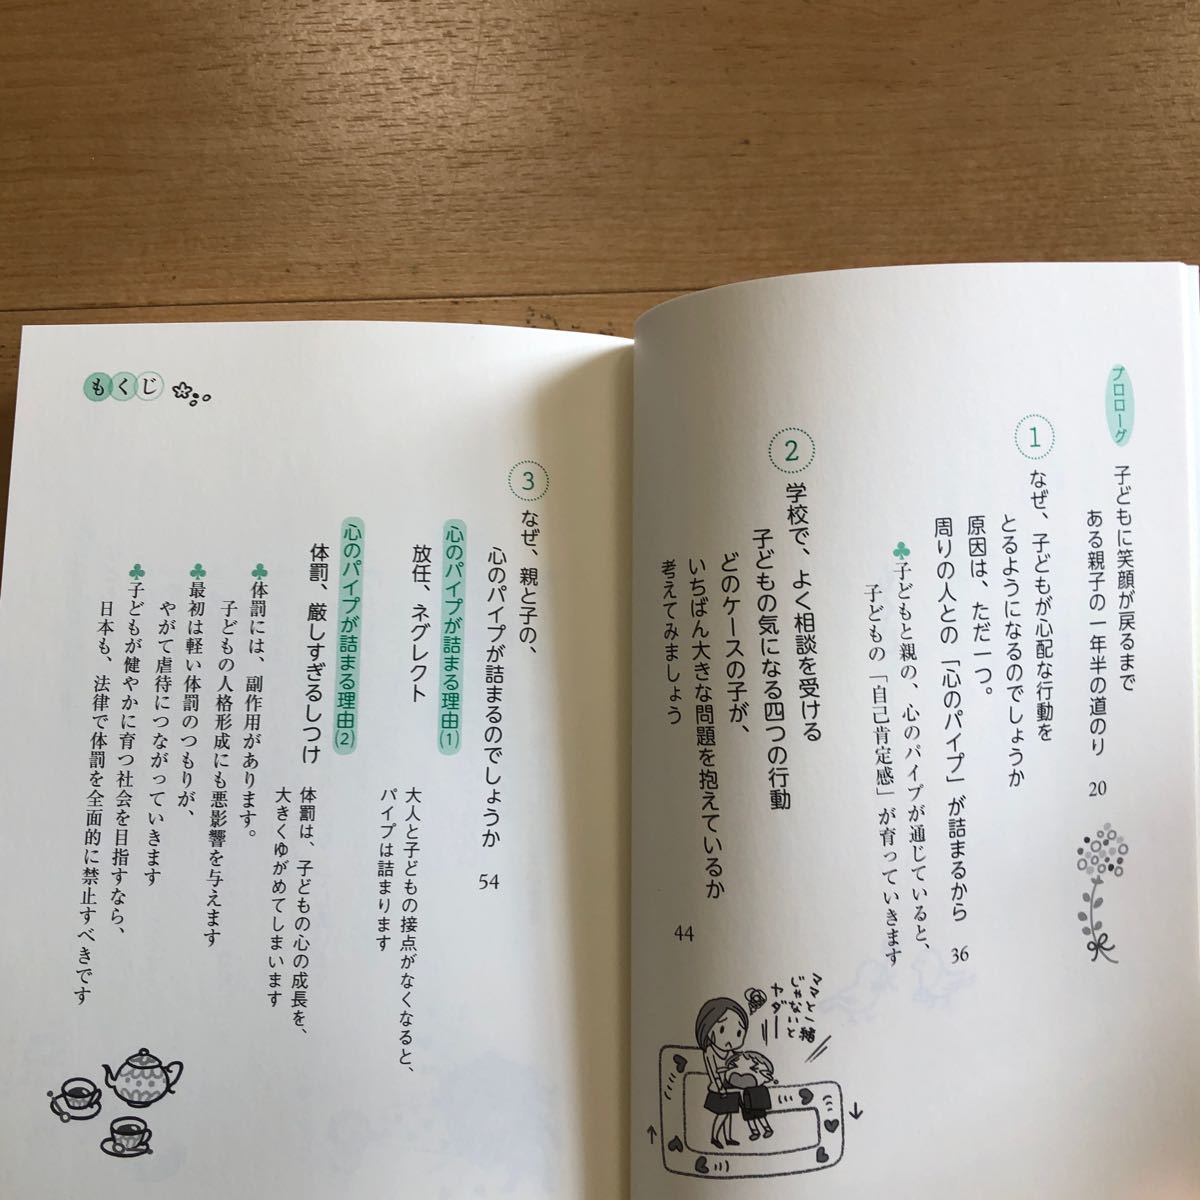 プロローグ
子どもに笑顔が戻るまで
ある親子の一年半の道のり 20
1
なぜ、子どもが心配な行動を
とるようになるのでしょうか
原因は、ただ一つ。
周りの人との「心のパイプ」が詰まるから 36
♣子どもと親の、心のパイプが通じていると、
子どもの「自己肯定感」が育っていきます
2
学校で、よく相談を受ける
子どもの気になる四つの行動
どのケースの子が、
いちばん大きな問題を抱えているか
考えてみましょう 44
ママと一緒
じゃないと
ヤダー
もくじ
3
なぜ、親と子の、
心のパイプが詰まるのでしょうか 54
心のパイプが詰まる理由(1)
放任、ネグレクト
大人と子どもの接点がなくなると、
パイプは詰まります
心のパイプが詰まる理由(2)
体罰、厳しすぎるしつけ
体罰は、子どもの心の成長を、
大きくゆがめてしまいます
♣体罰には、副作用があります。
子どもの人格形成にも悪影響を与えます
♣最初は軽い体罰のつもりが、
やがて虐待につながっていきます
♣子どもが健やかに育つ社会を目指すなら、
日本も、法律で体罰を全面的に禁止すべきです